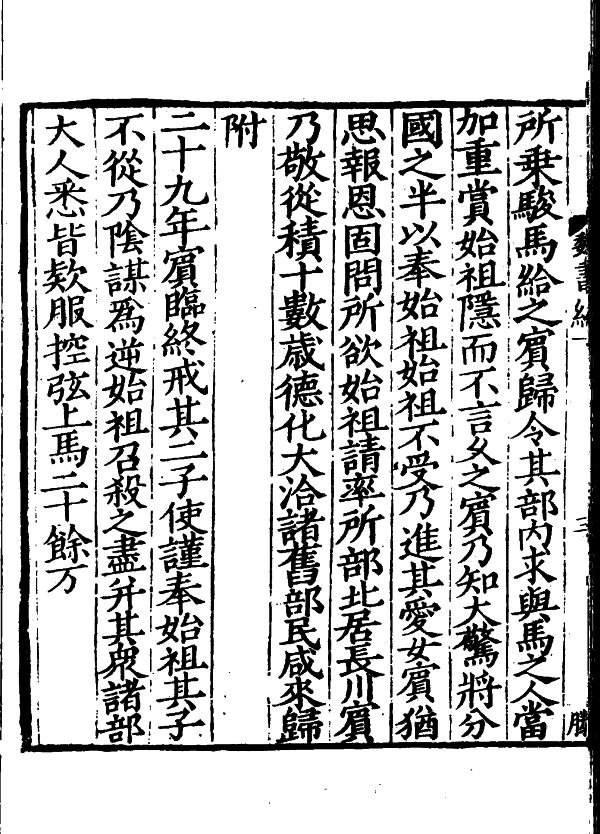 魏書紀一
三
所乗駿馬給之賔歸令其部内求與馬之人當
加重賞始祖隱而不言久之賔乃知大驚將分
國之半以奉始祖始祖不受乃進其愛女賔猶
思報恩固問所欲始祖請率所部北居長川賔
乃敬從積十數歳德化大洽諸舊部民咸來歸
附
二十九年賔臨終戒其二子使謹奉始祖其子
不從乃陰謀爲逆始祖召殺之盡并其衆諸部
大人悉皆欵服控弦上馬二十餘万